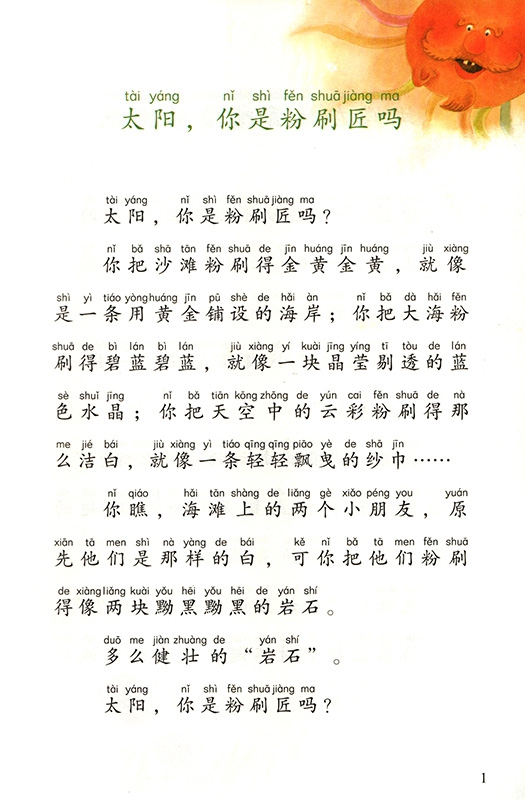 tài yáng nǐ shì fěn shuā jiàng ma
太阳，你是粉刷匠吗
tài yáng nǐ shì fěn shuā jiàng ma
太阳，你是粉刷匠吗？
nǐ bǎ shā tān fěn shuā de jīn huáng jīn huáng jiù xiàng
你把沙滩粉刷得金黄金黄，就像
shì yì tiáo yòng huáng jīn pū shè de hǎi àn nǐ bǎ dà hǎi fěn
是一条用黄金铺设的海岸；你把大海粉
shuā de bì lán bì lán jiù xiàng yí kuài jīng yíng tī tòu de lán
刷得碧蓝碧蓝，就像一块晶莹剔透的蓝
sè shuǐ jīng nǐ bǎ tiān kōng zhōng de yún cai fěn shuā de nà
色水晶；你把天空中的云彩粉刷得那
me jié bái jiù xiàng yì tiáo qīng qīng piāo yè de shā jīn
么洁白，就像一条轻轻飘曳的纱巾……
nǐ qiáo hǎi tān shàng de liǎng gè xiǎo péng you yuán
你瞧，海滩上的两个小朋友，原
xiān tā men shì nà yàng de bái kě nǐ bǎ tā men fěn shuā
先他们是那样的白，可你把他们粉刷
de xiàng liǎng kuài yǒu hēi yǒu hēi de yán shí
得像两块黝黑黝黑的岩石。
duō me jiàn zhuàng de yán shí
多么健壮的“岩石”。
tài yáng nǐ shì fěn shuā jiàng ma
太阳，你是粉刷匠吗？
1